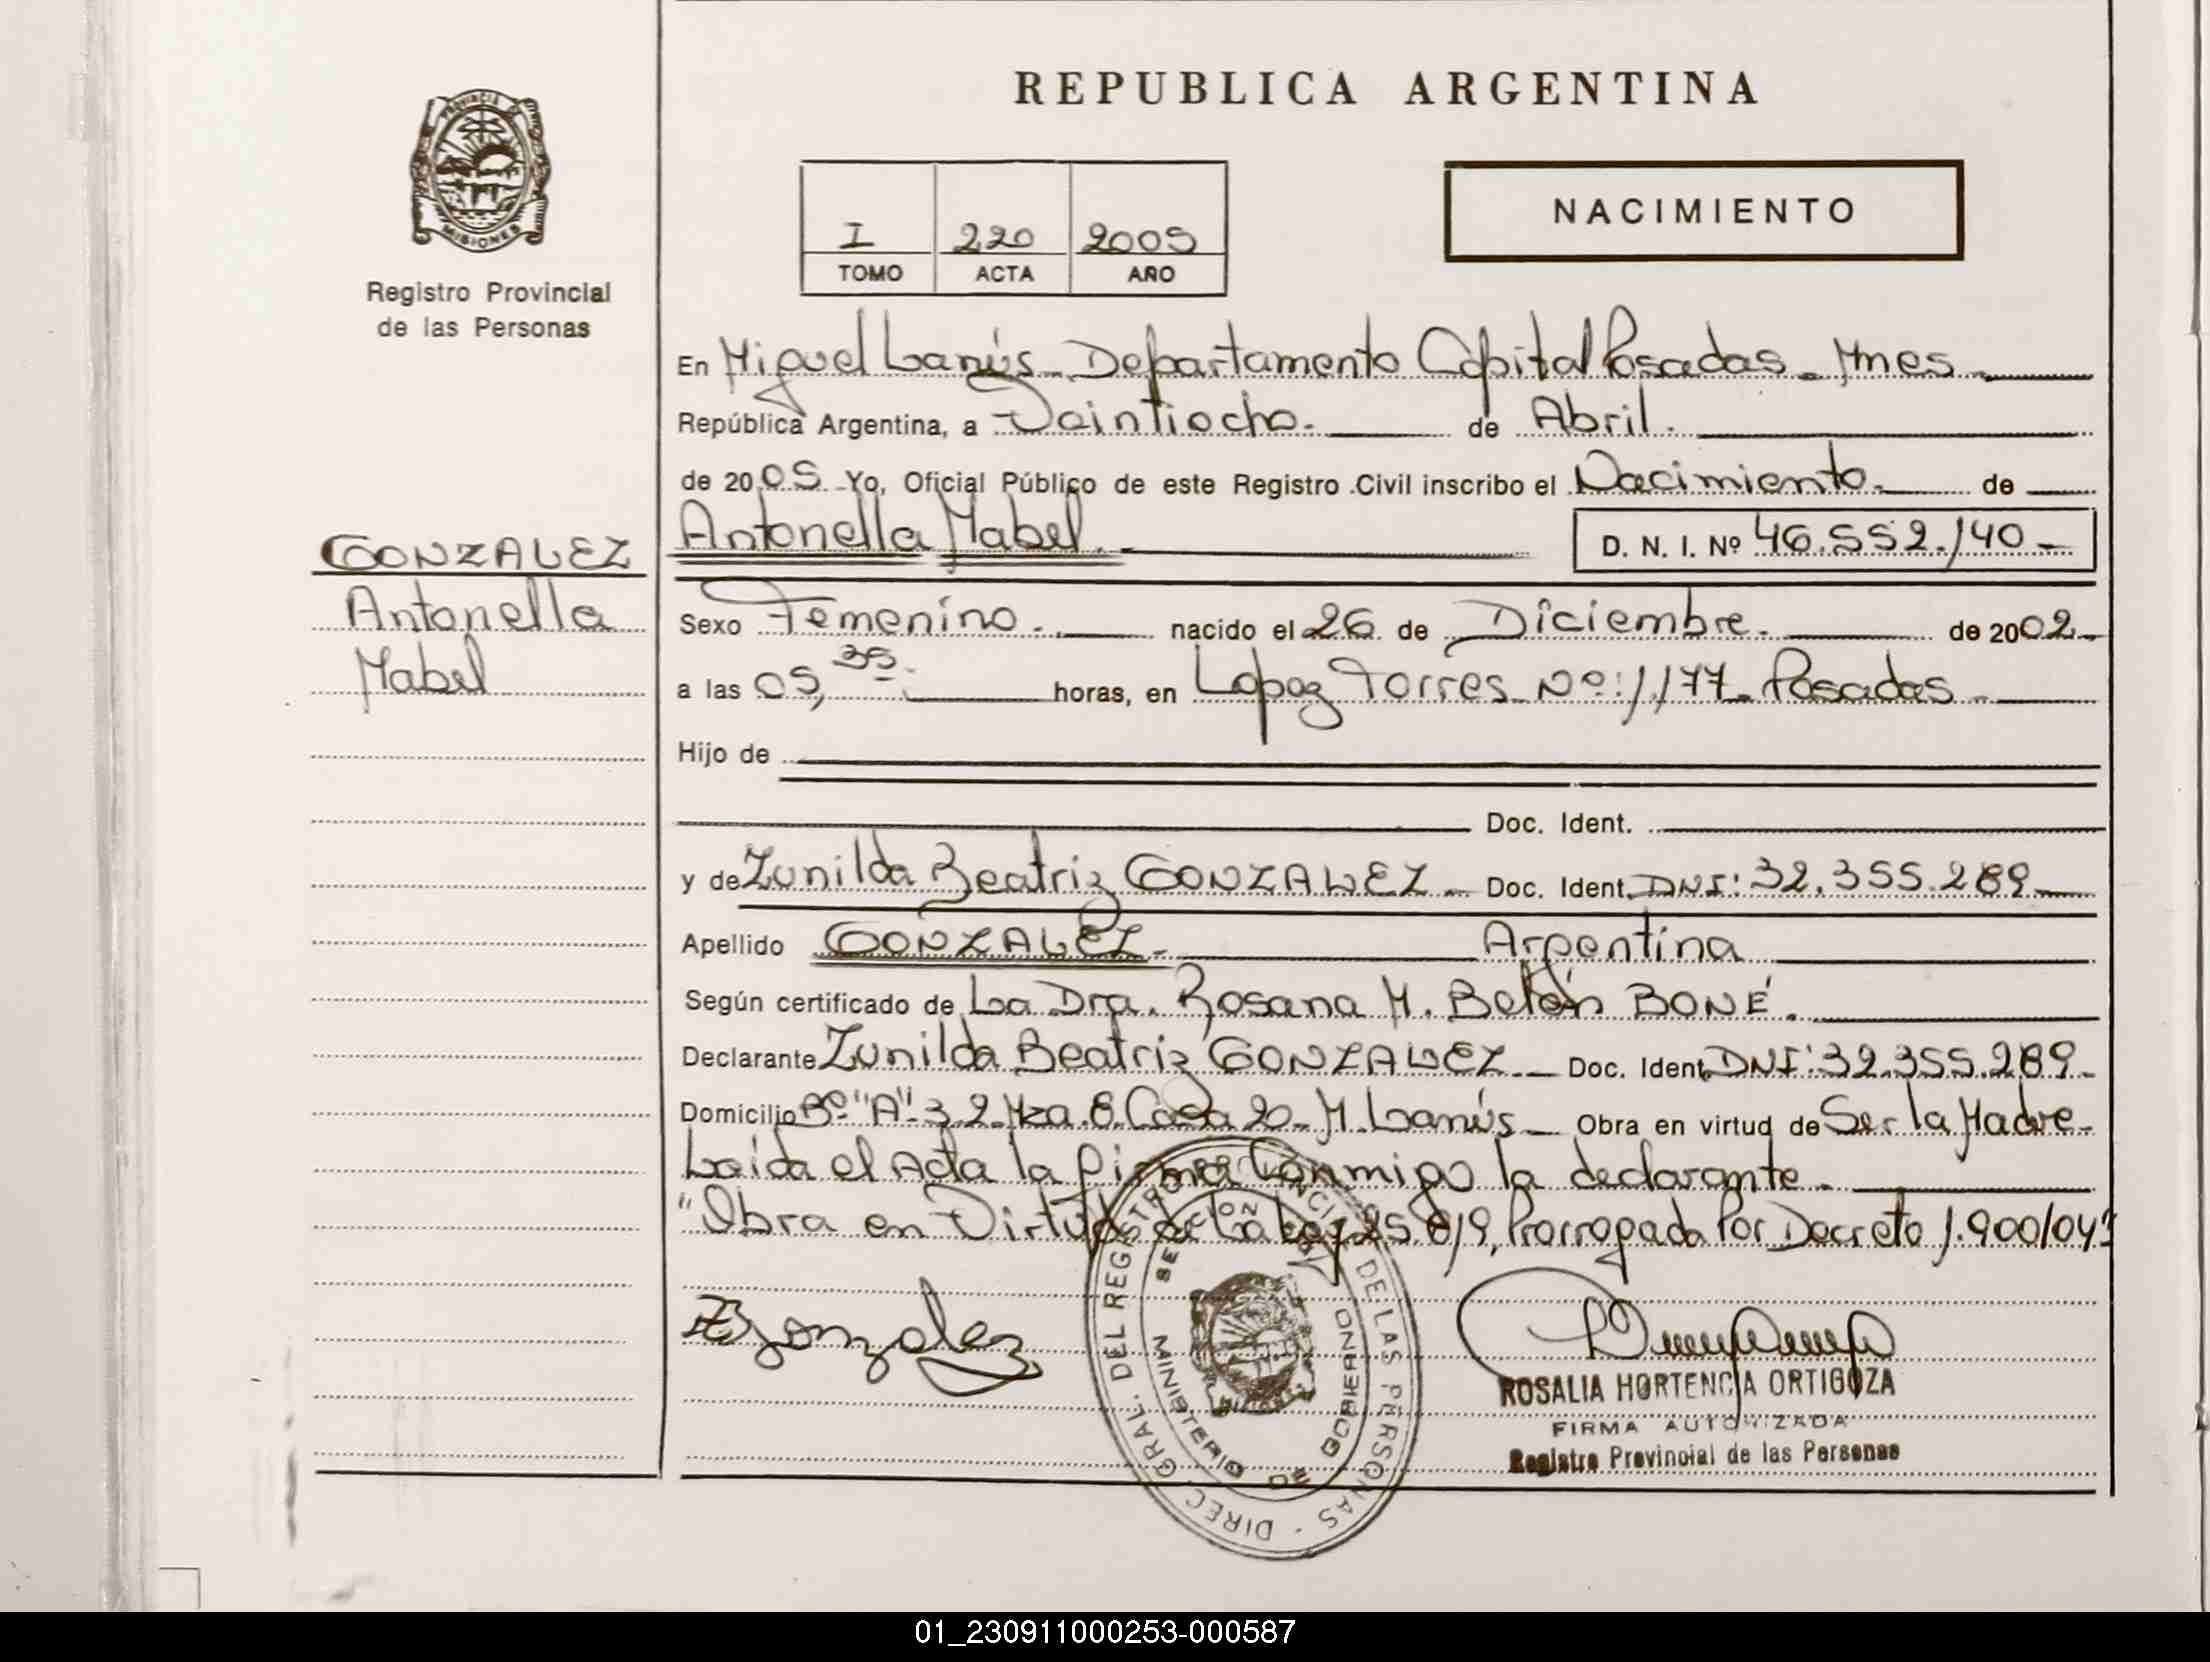 REPUBLICA ARGENTINA
PROVINCIA DE MISIONES
Registro Provincial
de las Personas
I 220 2005
TOMO ACTA AÑO
NACIMIENTO
En Miguel Lanús - Departamento Capital Posadas - Mnes -
República Argentina, a Veintiocho. de Abril.
de 2005. Yo, Oficial Público de este Registro Civil inscribo el Nacimiento. de
Antonella Mabel. D. N. I. Nº 46.552.140-
GONZALEZ
Antonella
Mabel
Sexo Femenino. nacido el 26 de Diciembre. de 2002-
a las 05,35. horas, en Lopez Torres Nº: 1177- Posadas -
Hijo de
Doc. Ident.
y de Zunilda Beatriz GONZALEZ - Doc. Ident. DNI: 32.355.289-
Apellido GONZALEZ - Argentina
Según certificado de La Dra. Rosana M. Belén BONÉ.
Declarante Zunilda Beatriz GONZALEZ - Doc. Ident. DNI: 32.355.289-
Domicilio Bº "A" 3.2 Mza. 8. Casa 20- M. Lanús - Obra en virtud de Ser la Madre-
Leída el Acta la firma conmigo la declarante.
"Obra en Virtud de la Ley 25.819, Prorrogada Por Decreto 1.900/04"
ZBgonzalez
DIREC. GRAL. DEL REGISTRO PROVINCIAL DE LAS PERSONAS -
MINISTERIO DE GOBIERNO
ROSALIA HORTENCIA ORTIGOZA
FIRMA AUTORIZADA
Registro Provincial de las Personas
01_230911000253-000587